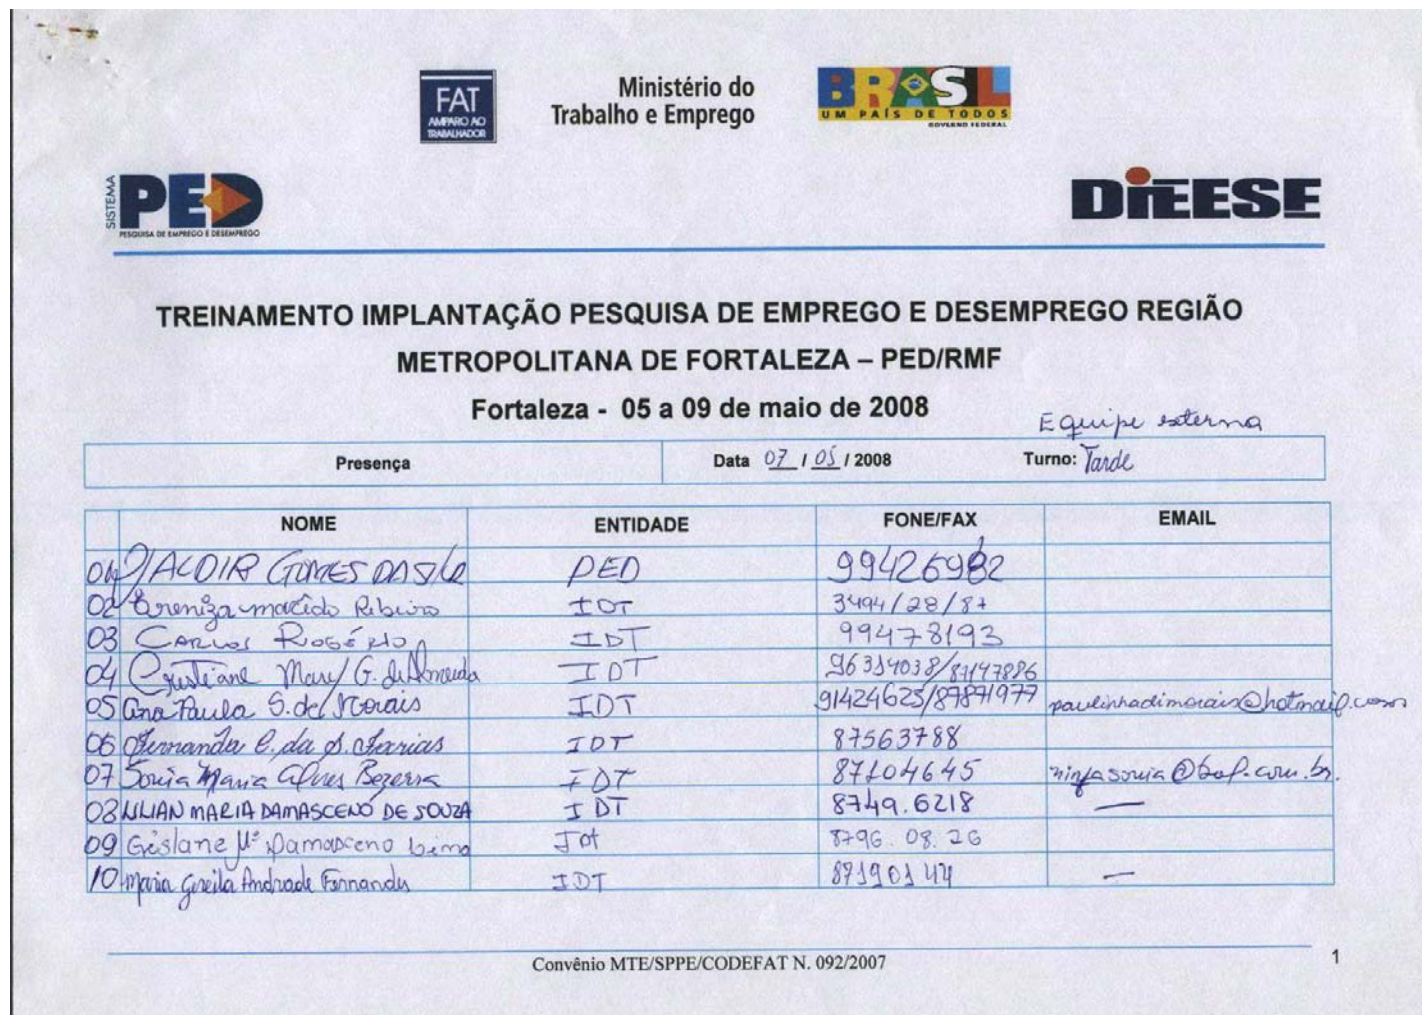 FAT
AMPARO AO
TRABALHADOR
Ministério do
Trabalho e Emprego
BRASIL
UM PAÍS DE TODOS
GOVERNO FEDERAL
SISTEMA
PED
PESQUISA DE EMPREGO E DESEMPREGO
DIEESE
TREINAMENTO IMPLANTAÇÃO PESQUISA DE EMPREGO E DESEMPREGO REGIÃO
METROPOLITANA DE FORTALEZA – PED/RMF
Fortaleza - 05 a 09 de maio de 2008
Equipe externa
Presença Data 07 / 05 / 2008 Turno: Tarde
NOME ENTIDADE FONE/FAX EMAIL
01 VALDIR GOMES DA SILVA PED 99426982
02 Macêdo Ribeiro IDT 3494/28/87
03 CARLOS ROGÉRIO IDT 99478193
04 Cristiane Mary G. de Almeida IDT 96314038/87147886
05 Ana Paula S. de Morais IDT 91424625/87871977 paulinhadimorais@hotmail.com
06 Fernanda C. da S. Farias IDT 87563788
07 Sonia Maria Alves Bezerra IDT 87104645 ninfasonia@bol.com.br.
08 LILIAN MARIA DAMASCENO DE SOUZA IDT 8749.6218 —
09 Gislane Mª Damasceno Lima Idt 8796.08.26
10 Maria Andrade Fernandes IDT 87190144 —
Convênio MTE/SPPE/CODEFAT N. 092/2007
1